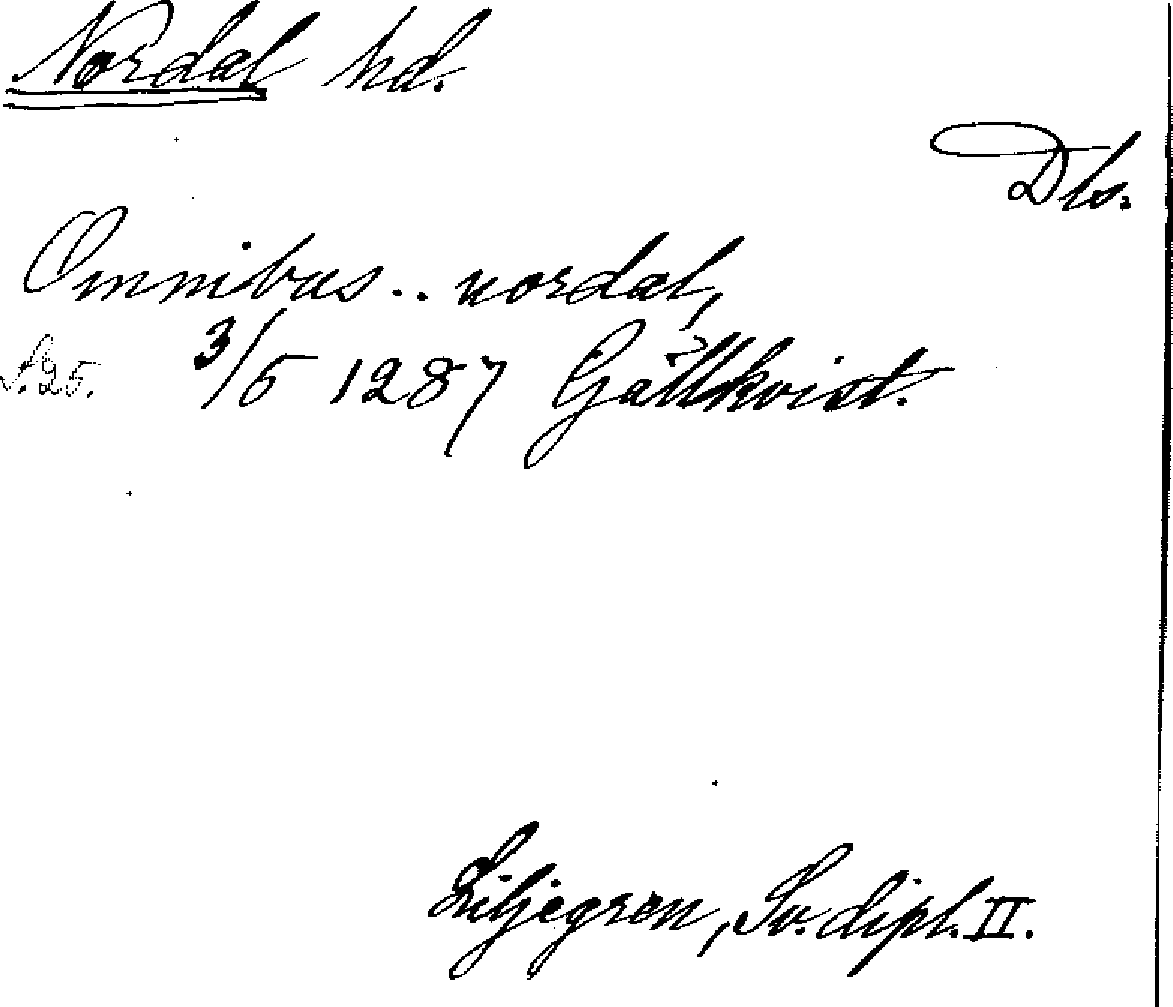 Nordal hd.
Dls.
Omnibus .. nordal,
S. 25. 3/5 1287 Gällkvist.
Liljegren, Sv. dipl. II.